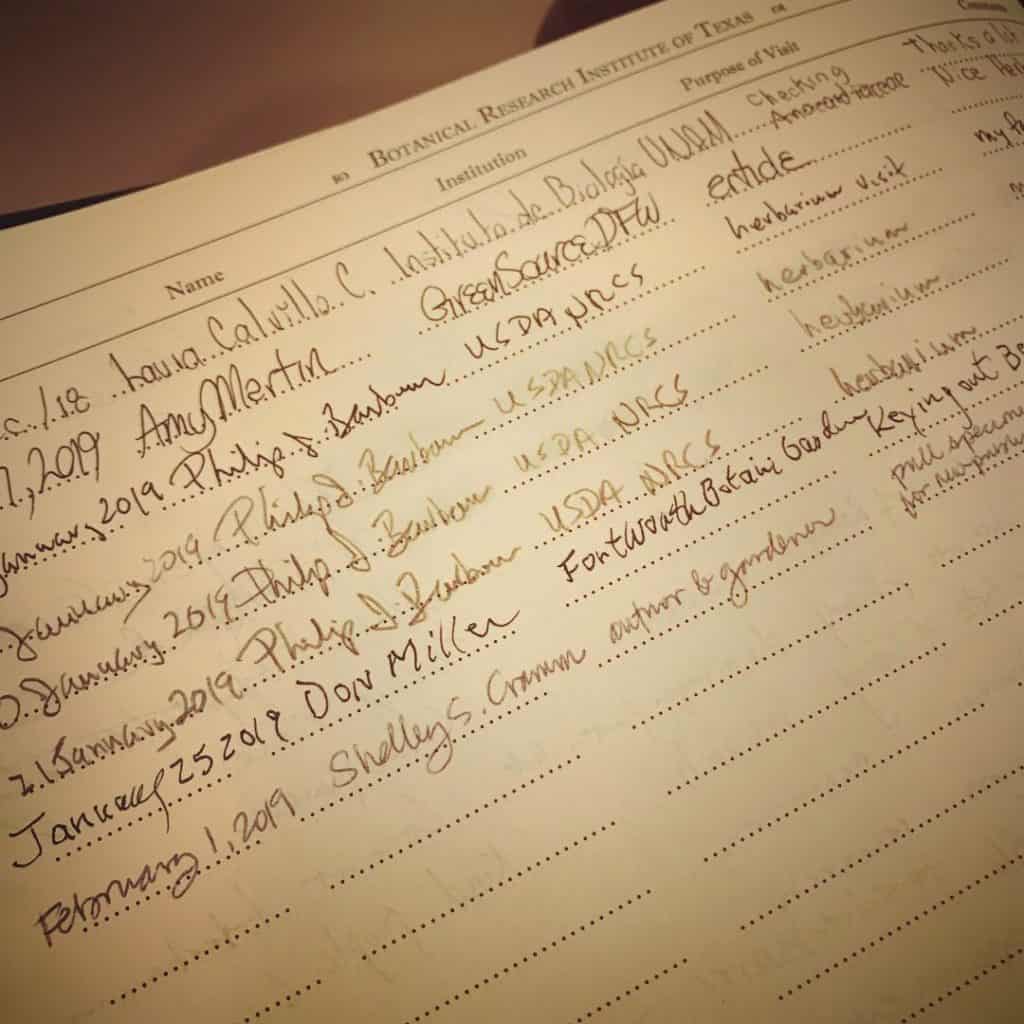 BOTANICAL RESEARCH INSTITUTE OF TEXAS
Name Institution Purpose of Visit
/18 Laura Calvillo C. Instituto de Biología UNAM Checking Anacardiaceae Thanks a lot
, 2019 Amy Martin GreenSourceDFW article Nice
January 2019 Philip J. Barbour USDA NRCS herbarium visit my
January 2019 Philip J. Barbour USDA NRCS herbarium
January 2019 Philip J Barbour USDA NRCS herbarium
21 January 2019 Philip J. Barbour USDA NRCS herbarium
January 25 2019 Don Miller Fort Worth Botanic Garden Keying out
February 1, 2019 Shelley S. Cramm author & gardener pull
for new